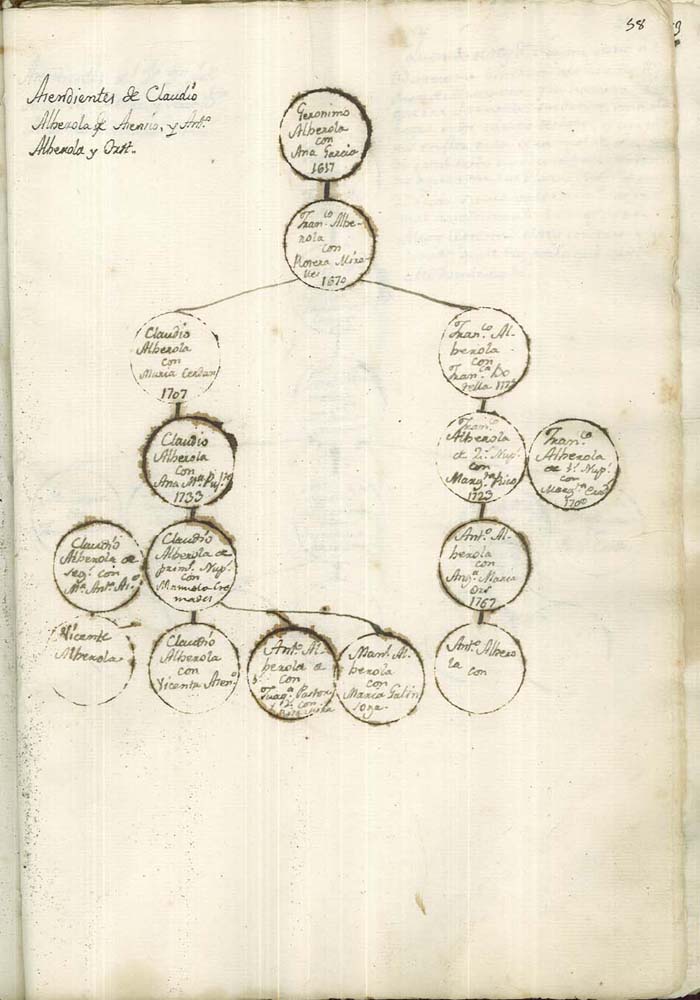 58
Asendientes de Claudio
Alberola de Asensio, y Ant.º
Alberola y Ort.
Geronimo
Alberola
con
Ana Garcia
1617
Fran.co Albe-
rola
con
Morera Mira-
lles
1670
Claudio
Alberola
con
Maria Cerdan
1707
Fran.co Al-
berola
con
Fran.ca
Claudio
Alberola
con
Ana M.a
1733
Fran.co
Alberola
de 2.s Nup.s
con
Marg.ta Pico
1723
Fran.co
Alberola
de 1.s Nup.s
con
Marg.ta
1700
Claudio
Alberola de
seg.s con
M.a Ant.a
Claudio
Alberola de
prim.s Nup.s
con
Manuela Cre-
mades
Ant.º Al-
berola
con
Ang.a Maria
Ort
1767
Vicente
Alberola
Claudio
Alberola
con
Vicenta Asen.º
Ant.º Al-
berola
con
Juaq.a Pastor y
2.s con
Man.l Al-
berola
con
Maria
Ant.º Albero
la con